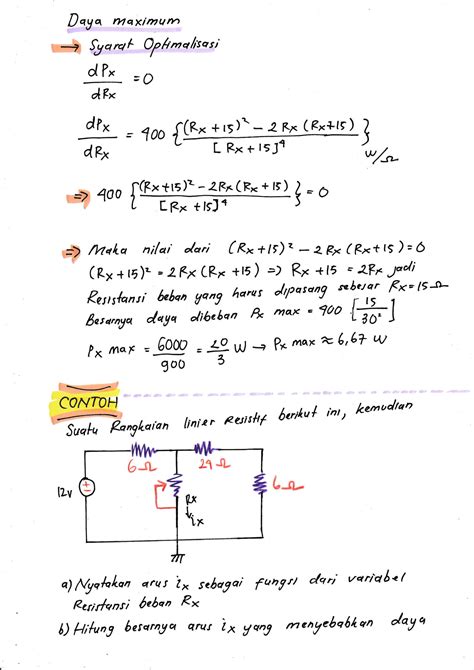 Daya maximum
→ Syarat Optimalisasi
dPx/dRx = 0
dPx/dRx = 400 { (Rx + 15)² − 2 Rx (Rx+15) / [Rx + 15]⁴ } W/Ω
⇒ 400 { (Rx+15)² − 2Rx (Rx + 15) / [Rx + 15]⁴ } = 0
⇒ Maka nilai dari (Rx+15)² − 2 Rx (Rx+15) = 0
(Rx + 15)² = 2 Rx (Rx + 15) ⇒ Rx + 15 = 2Rx jadi
Resistansi beban yang harus dipasang sebesar Rx = 15 Ω
Besarnya daya dibeban Px max = 400 [15/30²]
Px max = 6000/900 = 20/3 W → Px max ≈ 6,67 W
CONTOH
Suatu Rangkaian linier Resistif berikut ini, kemudian
6 Ω
29 Ω
12V
Rx
ix
6 Ω
a) Nyatakan arus ix sebagai fungsi dari variabel
Resistansi beban Rx
b) Hitung besarnya arus ix yang menyebabkan daya